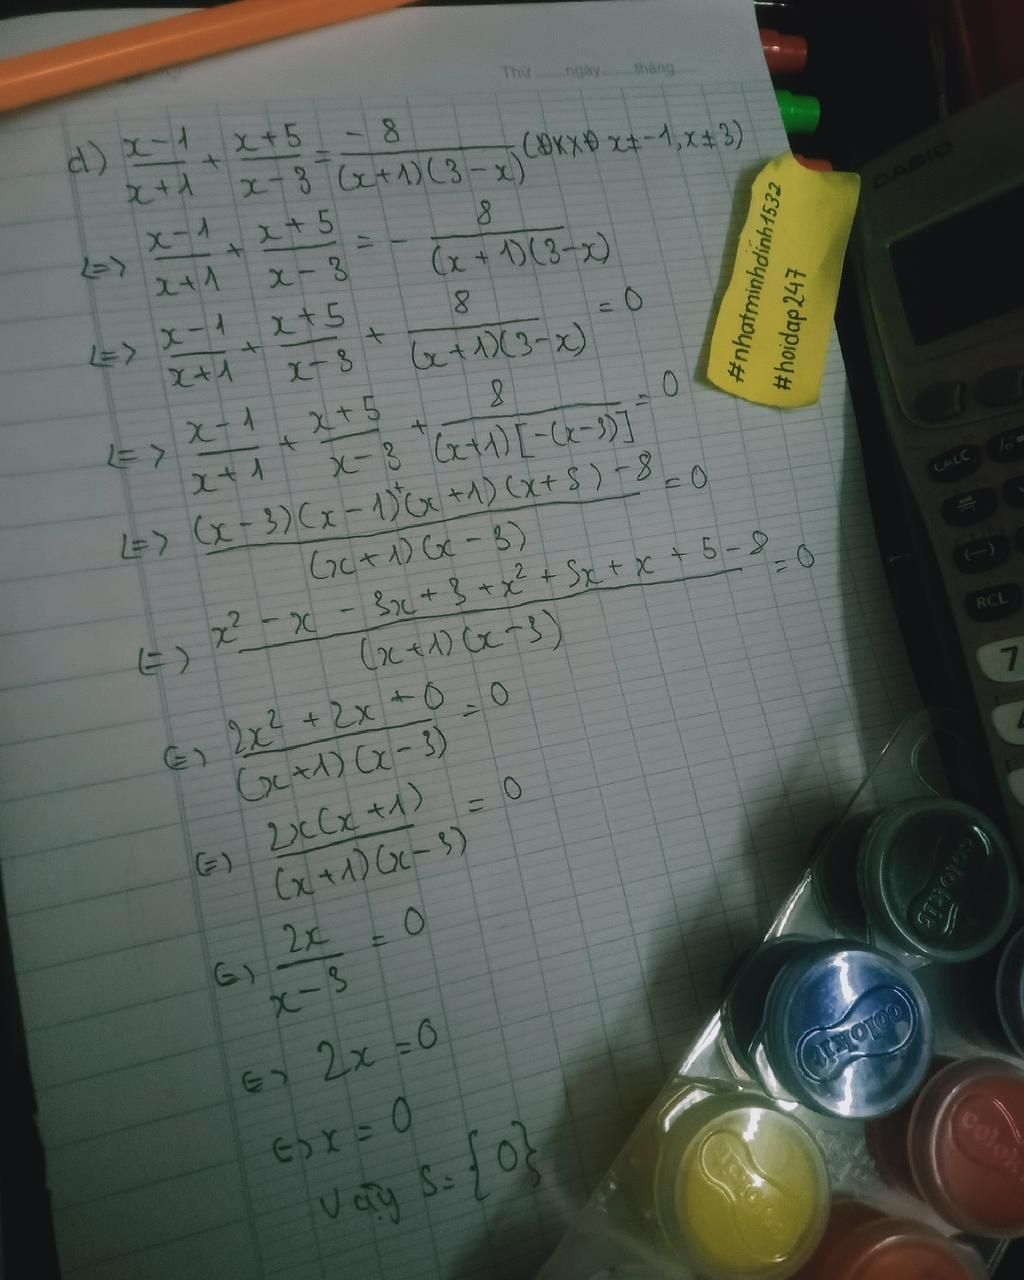 Thứ ........ngày........tháng........
d) \frac{x-1}{x+1} + \frac{x+5}{x-3} = \frac{-8}{(x+1)(3-x)} ( x ≠ -1, x ≠ 3)
<=> \frac{x-1}{x+1} + \frac{x+5}{x-3} = - \frac{8}{(x+1)(3-x)}
<=> \frac{x-1}{x+1} + \frac{x+5}{x-3} + \frac{8}{(x+1)(3-x)} = 0
<=> \frac{x-1}{x+1} + \frac{x+5}{x-3} + \frac{8}{(x+1)[-(x-3)]} = 0
<=> \frac{(x-3)(x-1)+(x+1)(x+5)-8}{(x+1)(x-3)} = 0
<=> \frac{x² - x - 3x + 3 + x² + 5x + x + 5 - 8}{(x+1)(x-3)} = 0
<=> \frac{2x² + 2x + 0}{(x+1)(x-3)} = 0
<=> \frac{2x(x+1)}{(x+1)(x-3)} = 0
<=> \frac{2x}{x-3} = 0
<=> 2x = 0
<=> x = 0
Vậy S = {0}
#nhatminhdinh1532
#hoidap247
CASIO
CALC
(-)
RCL
7
colokit
colokit
colokit